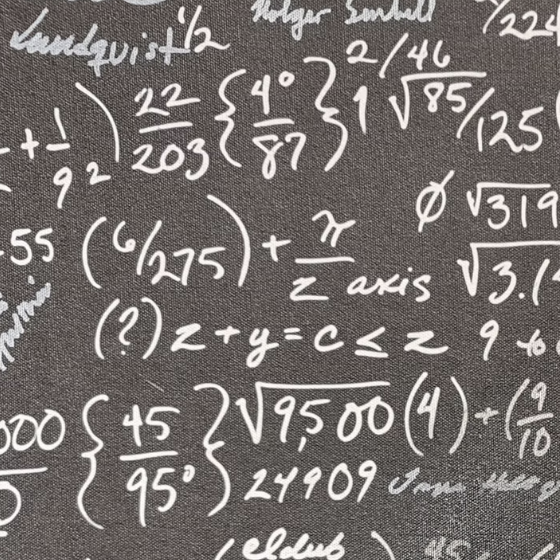 Lundquist 1/2
/224
+ 1/9 2 ) 22/203 { 4°/87 } 2/46
1 √85/125
55 (6/275) + π/z axis
Ø √319
√3.1
(?) z + y = c ≤ z 9 to
000/0 { 45/95° } √9,500 (4) + (9/10
24909